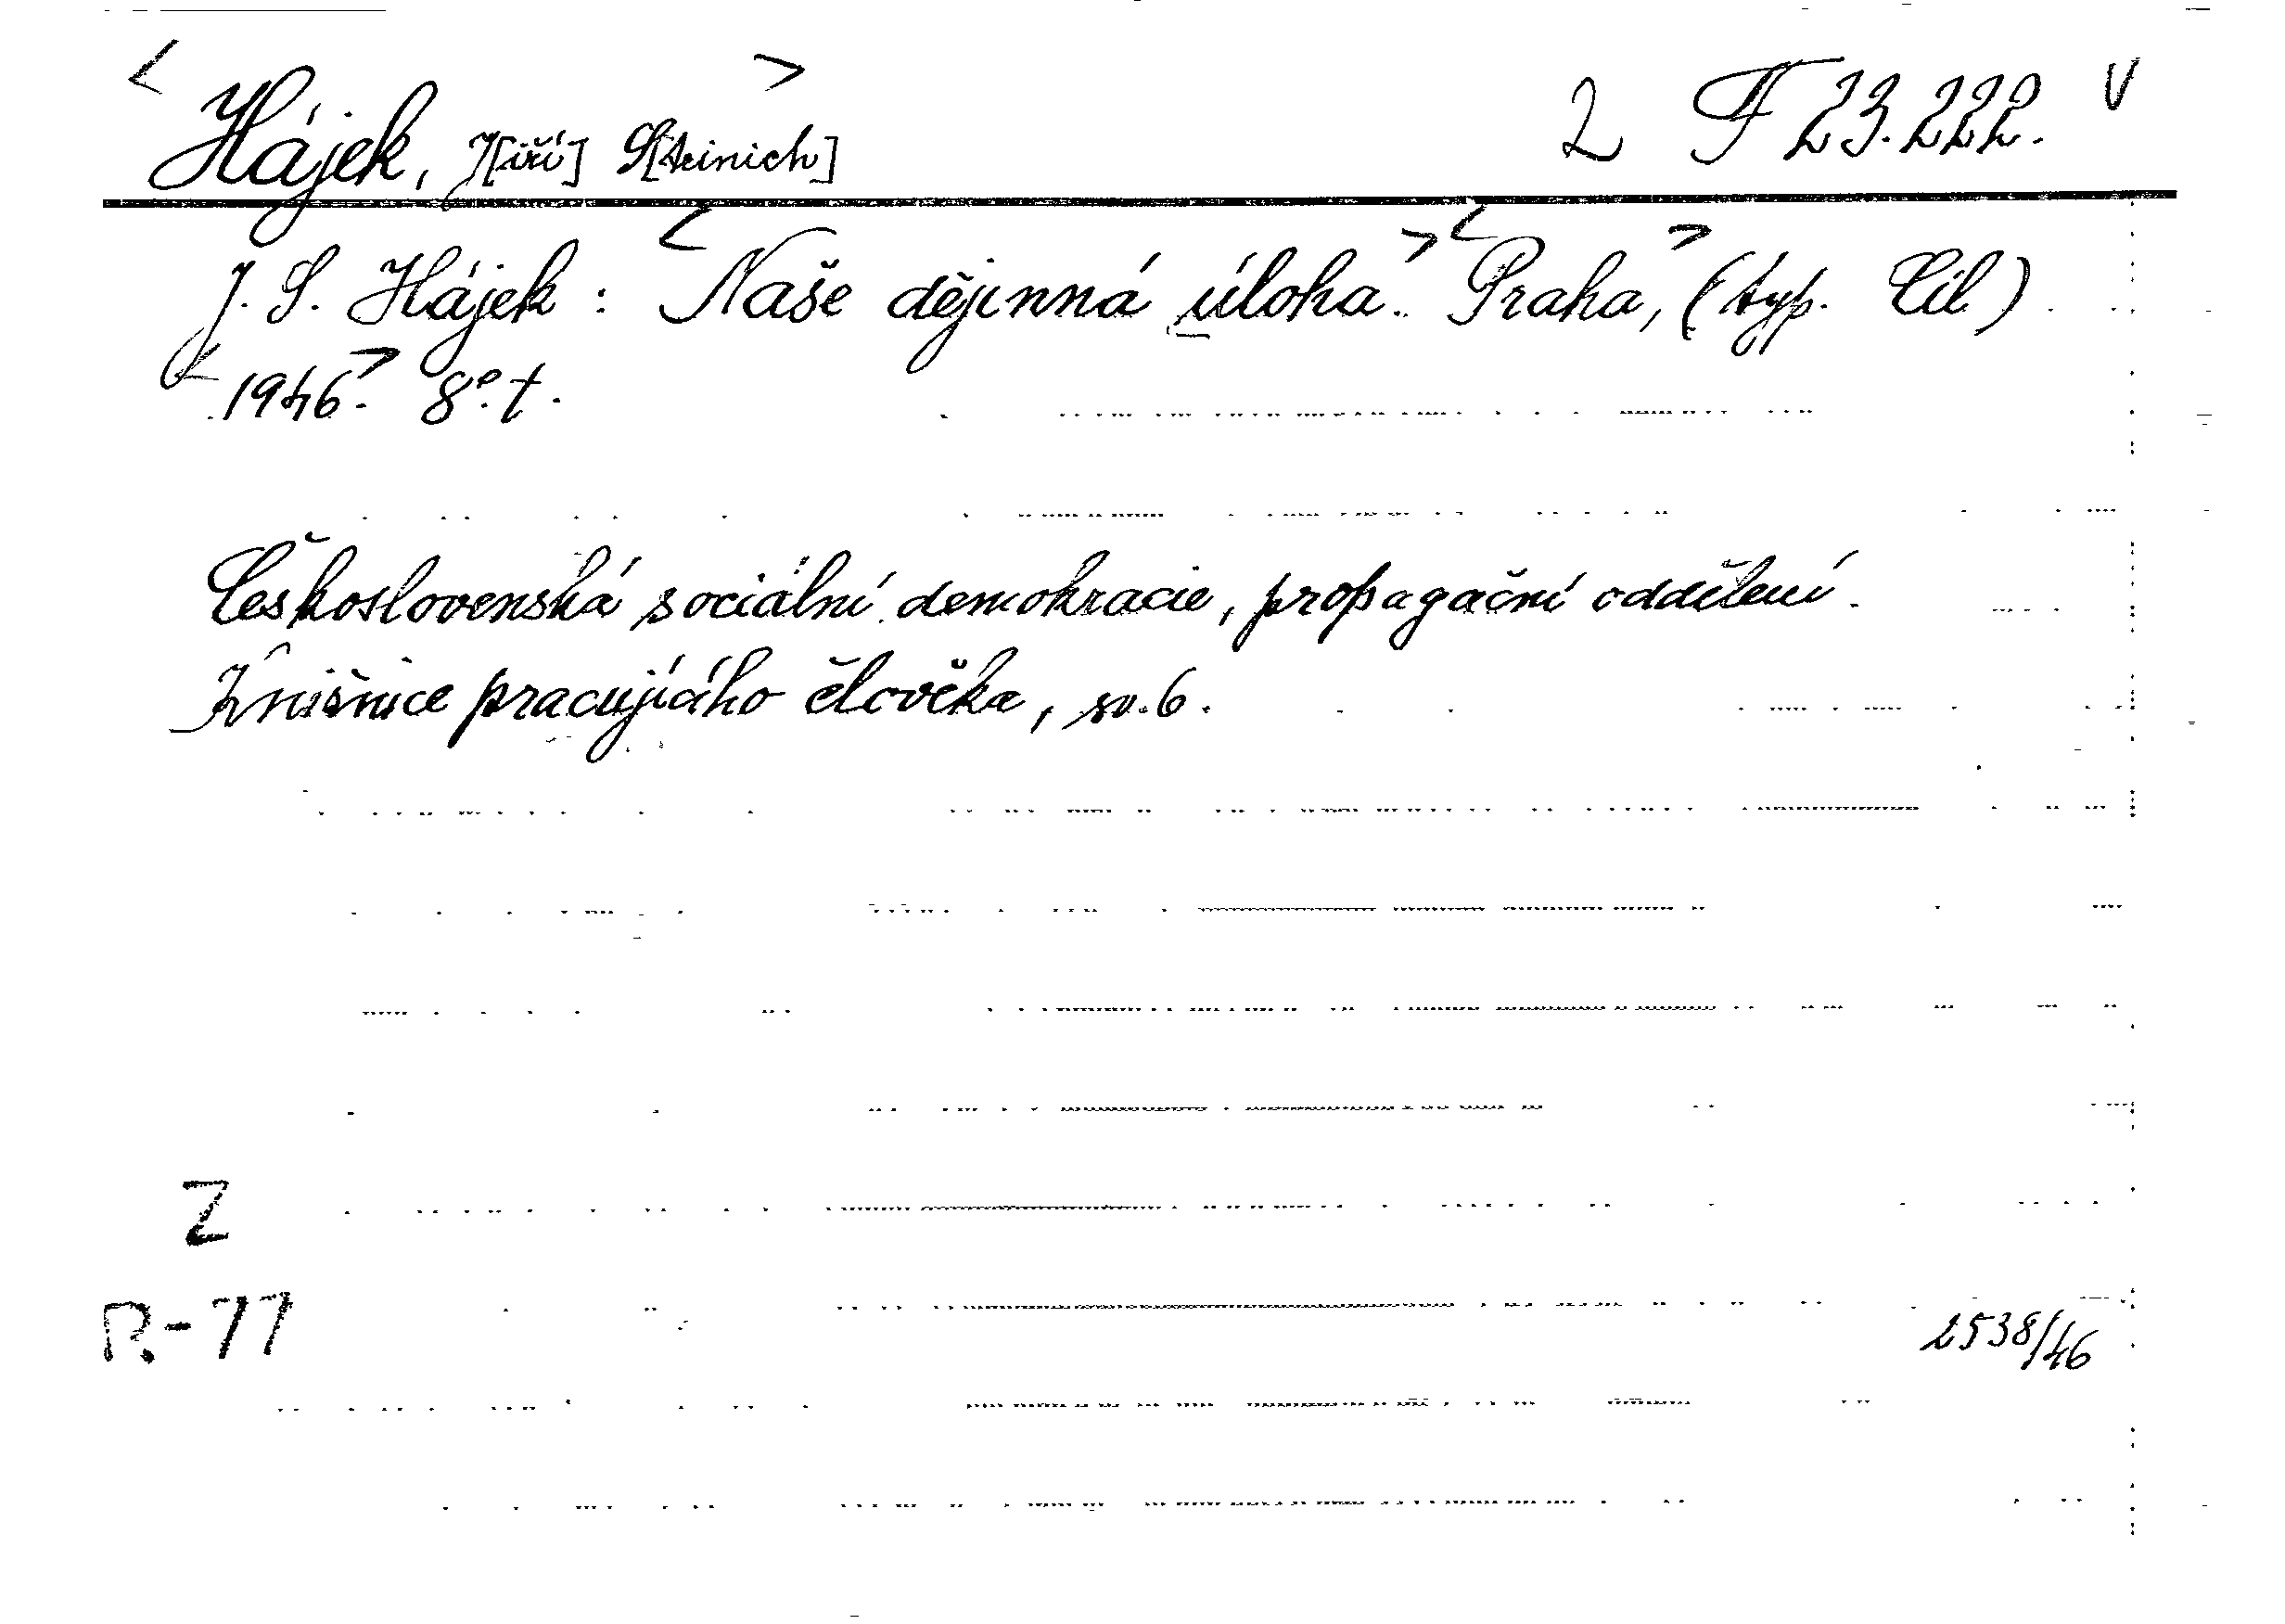 <Hájek, J[iří] S[teinich]> 2 F 23.222. V
J. S. Hájek : <Naše dějinná úloha.> <Praha,> (typ. Cíl)
<1946.> 8°. t.
Československá sociální demokracie, propagační oddělení.
Knižnice pracujícího člověka, sv. 6.
Z
P.-77
2538/46